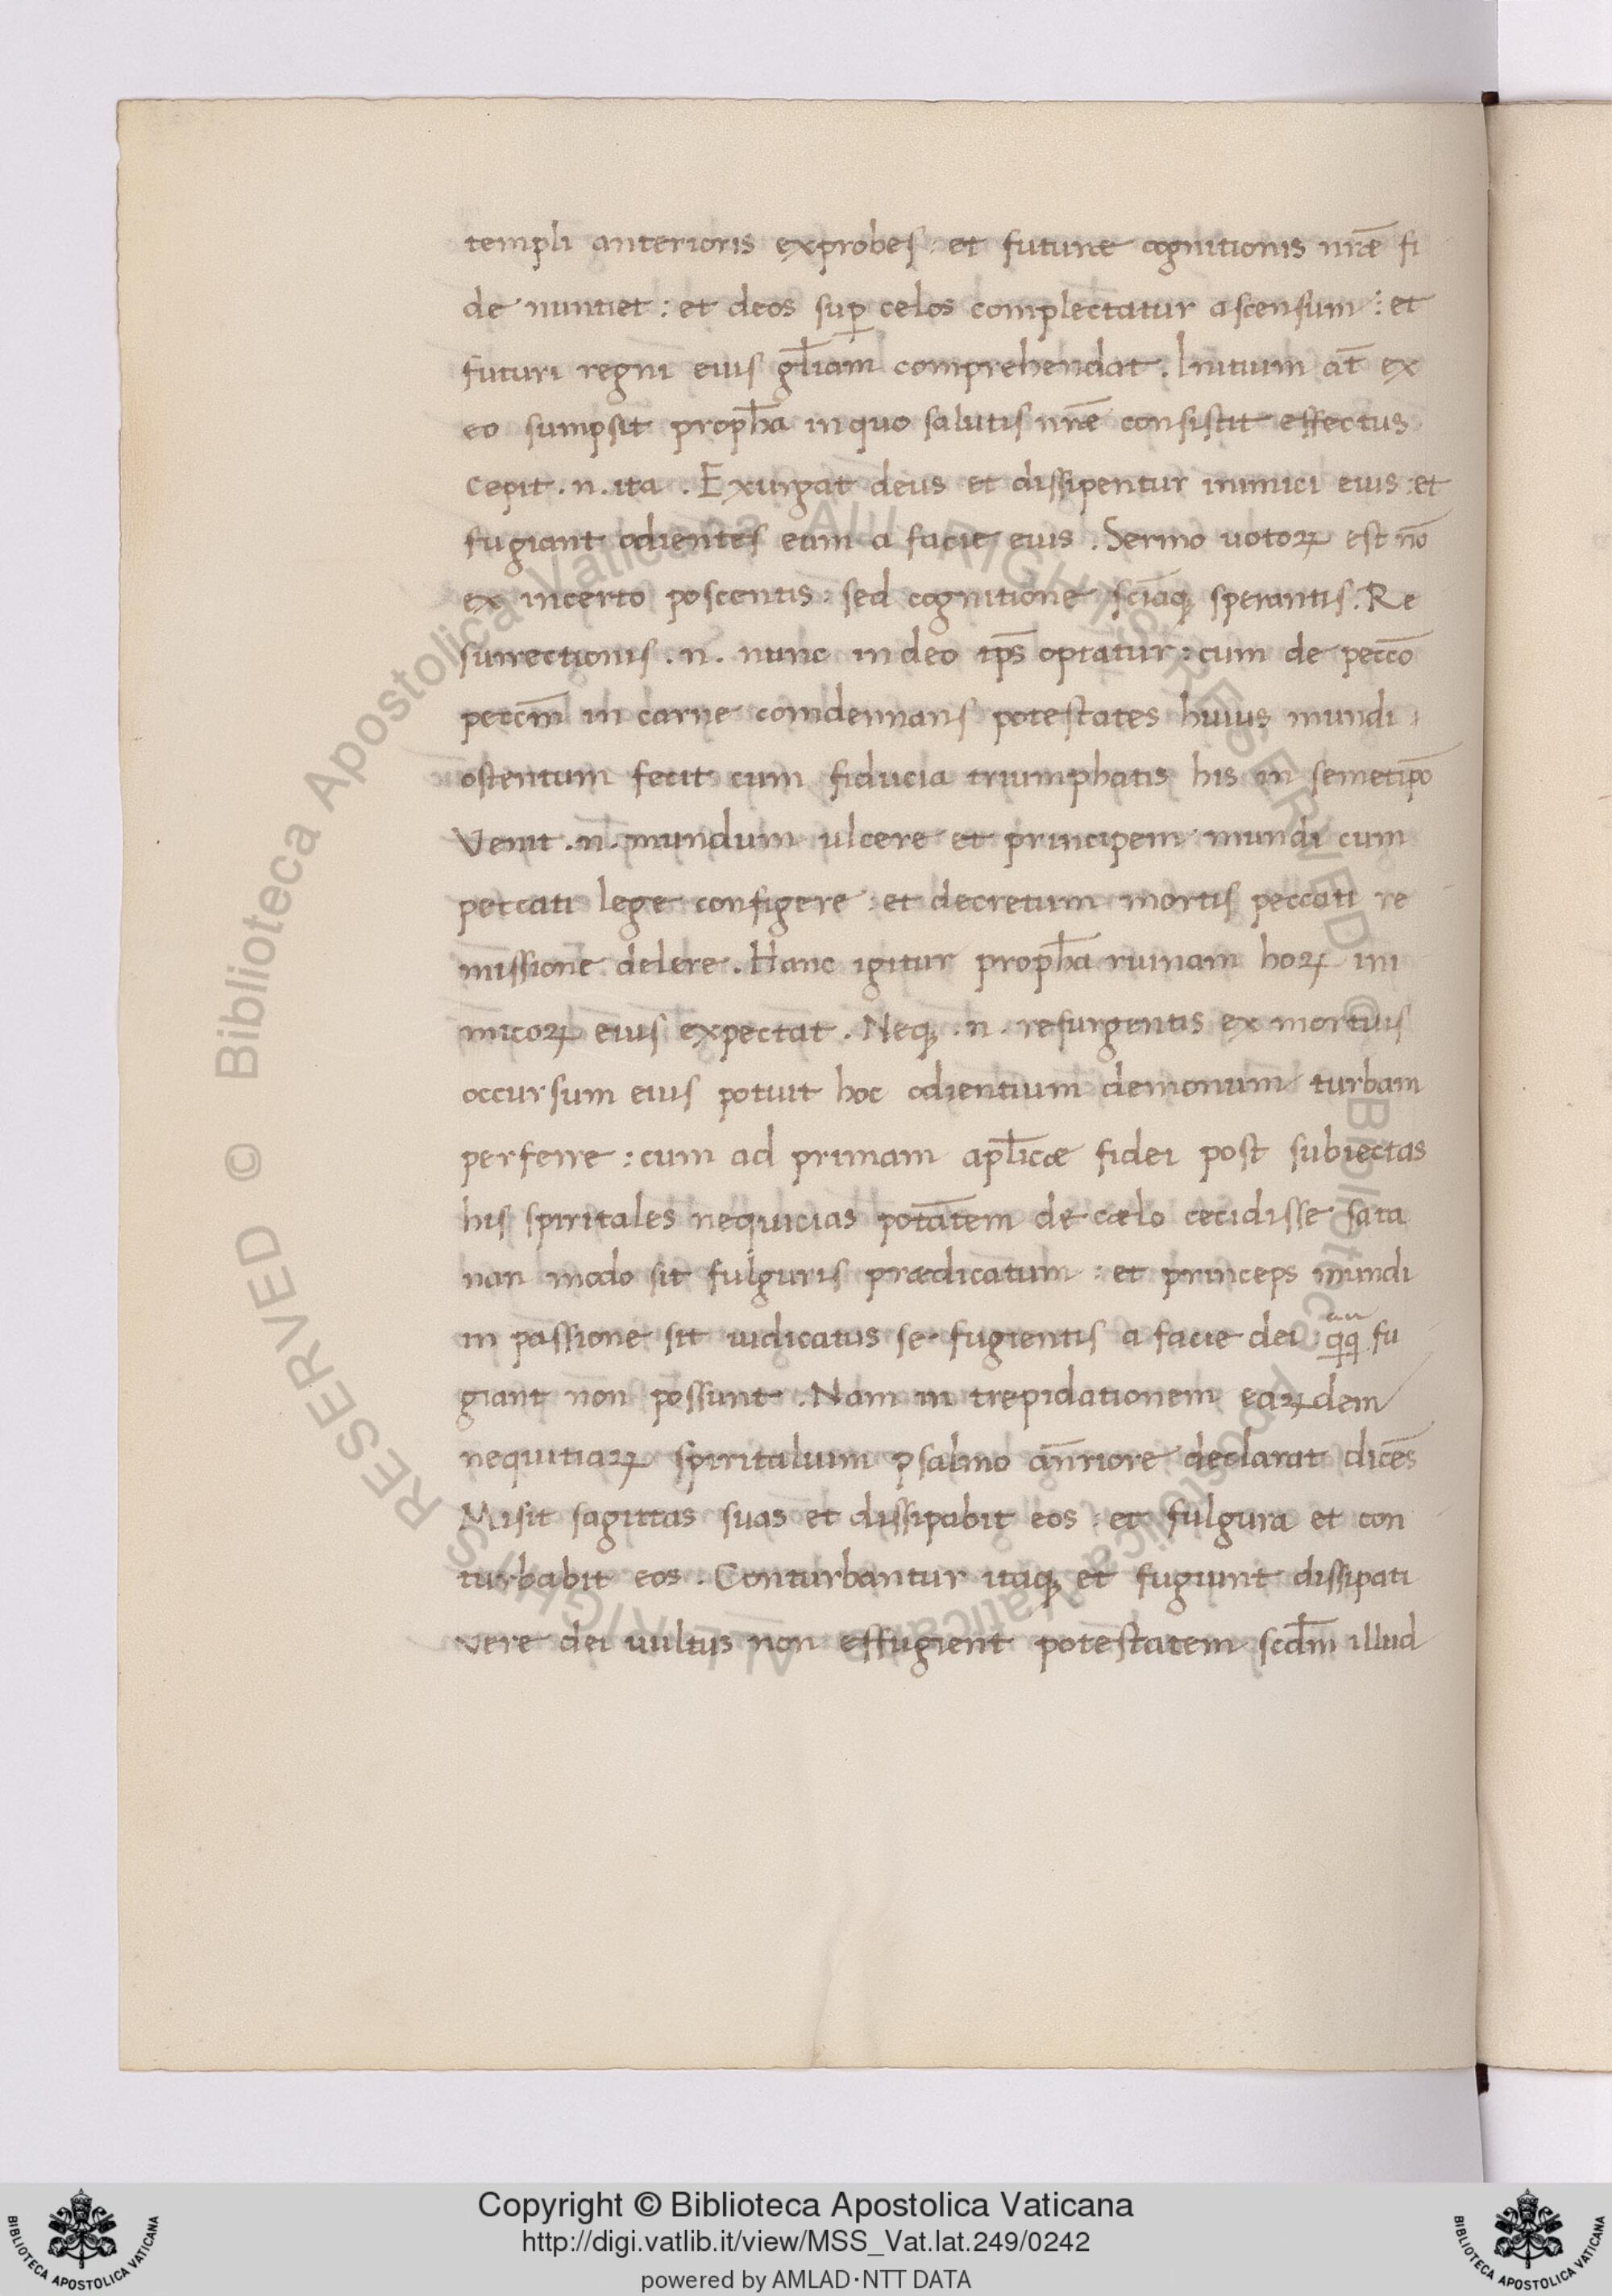 templi anterioris exprobes : et future cognitionis nr̄æ fi
de nuntiet : et deos sup̱ celos complectatur ascensum : et
futuri regni eius gl̄iam comprehendat . Initium at̄ ex
eo sumpsit proph̄a in quo salutis nr̄e consistit effectus
cepit . n . ita . Exurgat deus et dissipentur inimici eius : et
fugiant odientes eum a facie eius . Sermo uotoꝝ est nō
ex incerto poscentis : sed cognitione sciāqꝫ sperantis . Re
surrectionis . n . nunc in deo ip̄s optatur : cum de peccō
petcm̄ in carne comdennans potestates huius mundi
ostentum fecit cum fiducia triumphatis his in semetip̄o
Venit . n . mundum ulcere et principem mundi cum
peccati lege configere : et decretum mortis peccati re
missione delere . Hanc igitur proph̄a ruinam hoꝝ ini
micoꝝ eius expectat . Neqꝫ . n . resurgentis ex mortuis
occursum eius potuit hoc odientium demonum turbam
perferre : cum ad primam apl̄icæ fidei post subiectas
his spiritales nequicias potātem de cælo cecidisse sata
nan modo sit fulguris prædicatum : et princeps mundi
in passione sit iudicatus se fugientis a facie dei : fu
giant non possunt . Nam in trepidationem eaꝝdem
nequitiaꝝ spiritalium psalmo an̄riore declarat dicēs
Misit sagittas suas et dissipabit eos : et fulgura et con
turbabit eos . Conturbantur itaqꝫ et fugiunt dissipati
vere dei uultus non effugient potestatem scd̄m illud
© Biblioteca Apostolica Vaticana ALL RIGHTS RESERVED
© Biblioteca Apostolica Vaticana ALL RIGHTS RESERVED
Copyright © Biblioteca Apostolica Vaticana
http://digi.vatlib.it/view/MSS_Vat.lat.249/0242
powered by AMLAD·NTT DATA
BIBLIOTECA APOSTOLICA VATICANA
BIBLIOTECA APOSTOLICA VATICANA